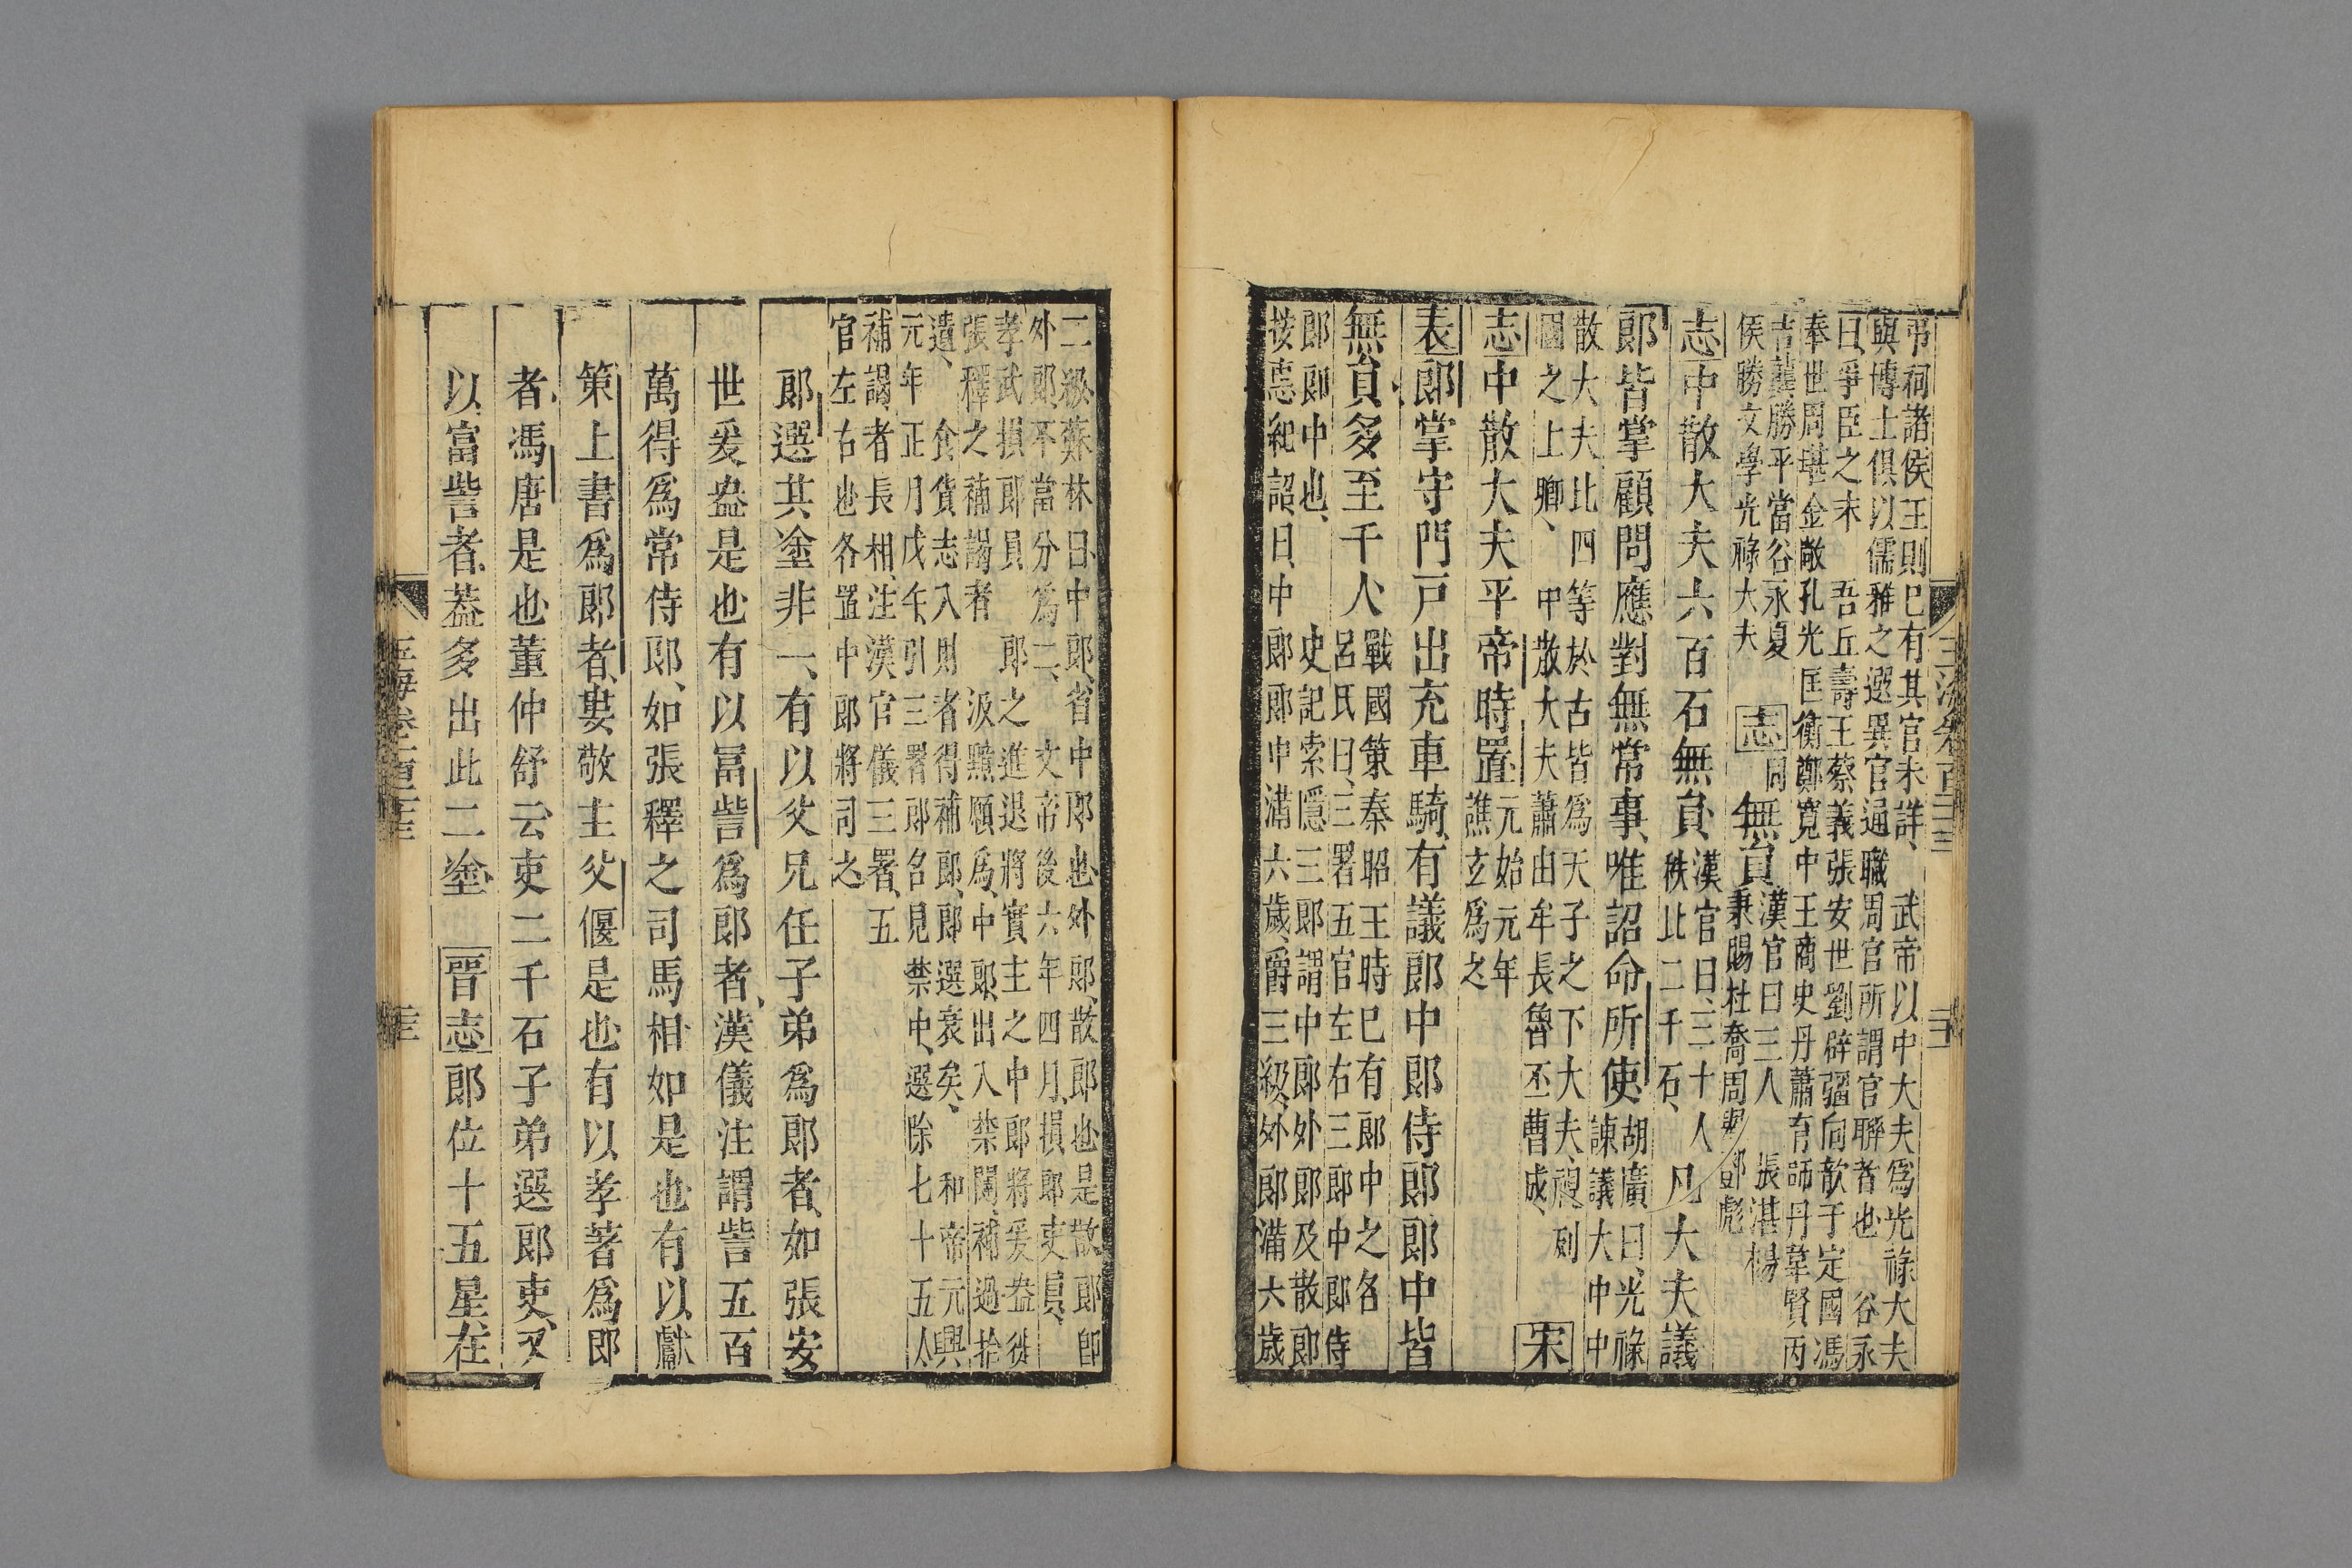 弔祠諸侯王則已有其官未詳、武帝以中大夫爲光祿大夫
與博士俱以儒雅之選異官通職周官所謂官聯者也 谷永
曰爭臣之末 吾丘壽王蔡義張安世劉辟彊向歆于定國馮
奉世周堪金敞孔光匡衡鄭寬中王商史丹蕭育師丹韋賢丙
吉龔勝平當谷永夏
侯勝文學光祿大夫
志同 無員
漢官曰三人 張湛楊
秉賜杜喬周舉鄧彪
志中散大夫六百石無員
漢官曰三十人
秩比二千石、
凡大夫議
郎皆掌顧問應對無常事唯詔命所使
胡廣曰光祿
諫議大中中
散大夫比四等於古皆爲天子之下大夫視列
國之上卿、中散大夫蕭由牟長魯丕曹成
宋
志中散大夫平帝時置
元始元年
譙玄爲之
表郎掌守門戸出充車騎有議郎中郎侍郎郎中皆
無員多至千人
戰國策秦昭王時已有郎中之名
呂氏曰三署五官左右三郎中郎侍
郎郎中也、史記索隱三郎謂中郎外郎及散郎
按惠紀詔曰中郎郎中滿六歲爵三級外郎滿六歲
二級蘇林曰中郎省中郎也外郎散郎也是散郎即
外郎不當分爲二、文帝後六年四月損郎吏員、
孝武損郎員 郎之進退將實主之中郎將爰盎徙
張釋之補謁者 汲黯願爲中郎出入禁闥補過拾
遺、食貨志入財者得補郎郎選衰矣、和帝元興
元年正月戊午引三署郎名見禁中選除七十五人
補謁者長相注漢官儀三署、五
官左右也各置中郎將司之
郎選其塗非一、有以父兄任子弟爲郎者如張安
世爰盎是也有以富訾爲郎者、漢儀注謂訾五百
萬得爲常侍郎、如張釋之司馬相如是也有以獻
策上書爲郎者婁敬主父偃是也有以孝著爲郎
者馮唐是也董仲舒云吏二千石子弟選郎吏又
以富訾者葢多出此二塗 晉志郎位十五星在